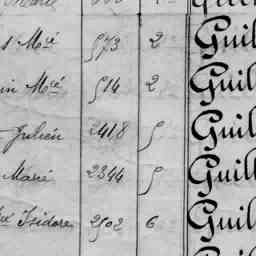 s Mcé 573 2 Guil
in Mcé 514 2 Guil
Julien 2418 5 Guil
Marie 2344 5 Guill
Isidore 2502 6 Guil